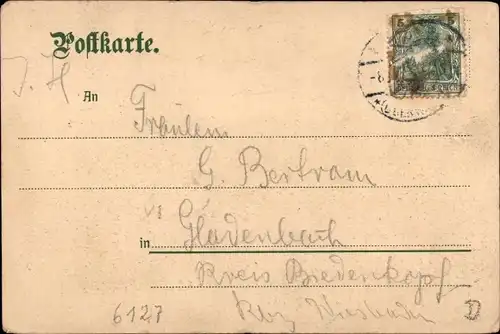 Postkarte.
5 5
J. H
An
Fräulein
G. Bertram
in Gladenbach
Kreis Biedenkopf
Rbz Wiesbaden
6127